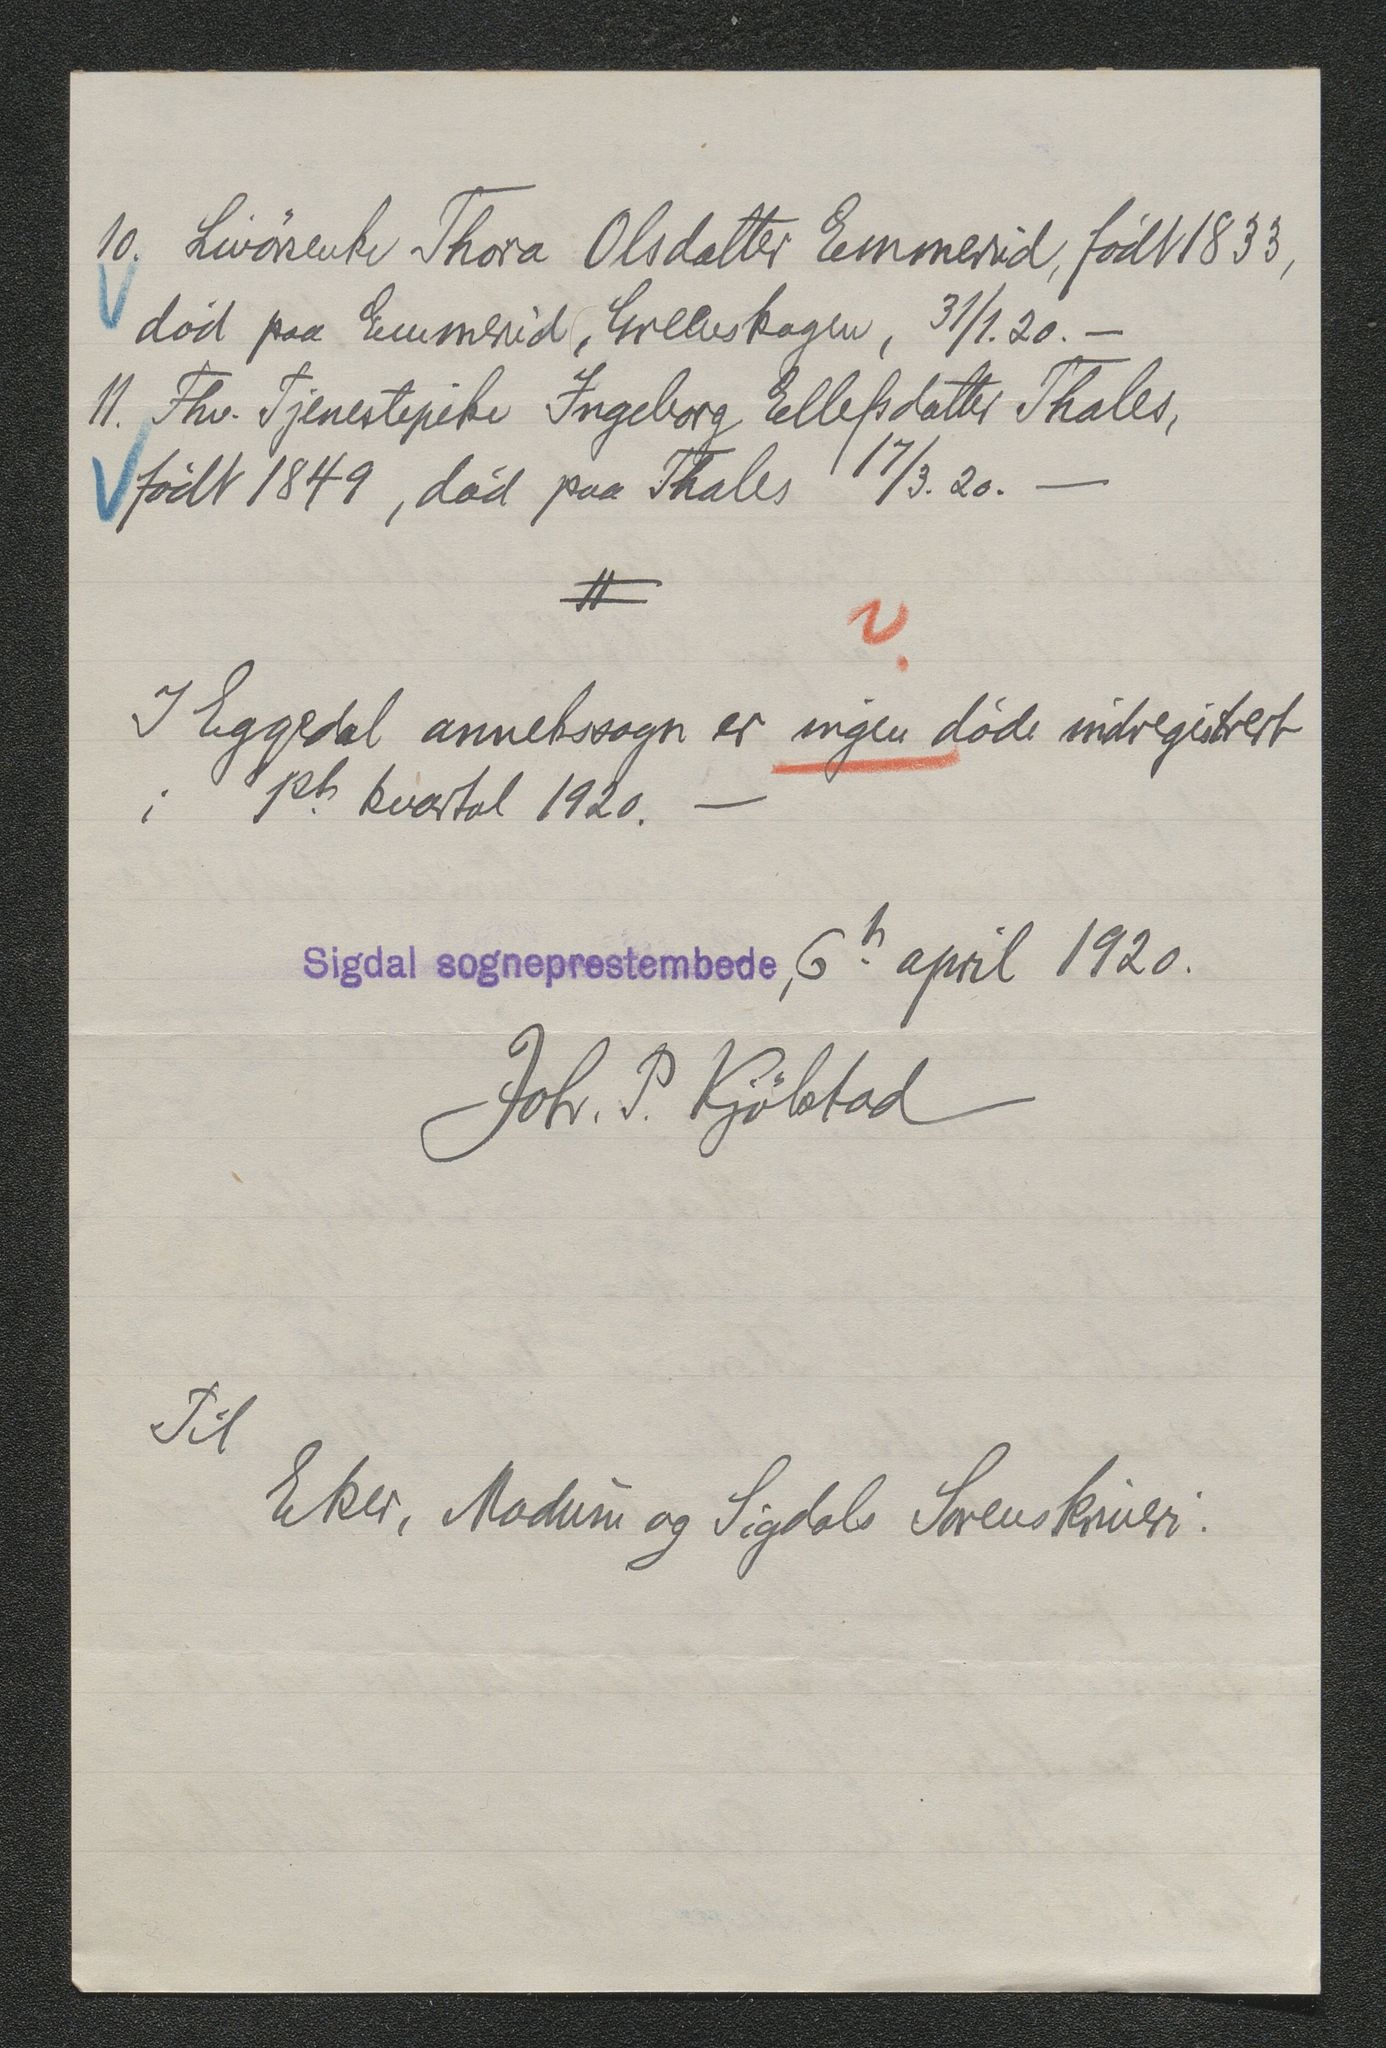 10. Livörsenke Thora Olsdatter Emmerud, født 1833,
død paa Emmerud, Grenskogen, 31/1.20. —
11. Fhv. Tjenestepike Ingeborg Ellefsdatter Thales,
født 1849, død paa Thales 17/3.20. —
11
I Eggedal annekssogn er ingen døde indregistrert
i 1ste kvartal 1920. —
Sigdal sogneprestembede, 6h april 1920.
Joh. P. Kjölstad
Til
Eker, Modum og Sigdals Sorenskriveri.